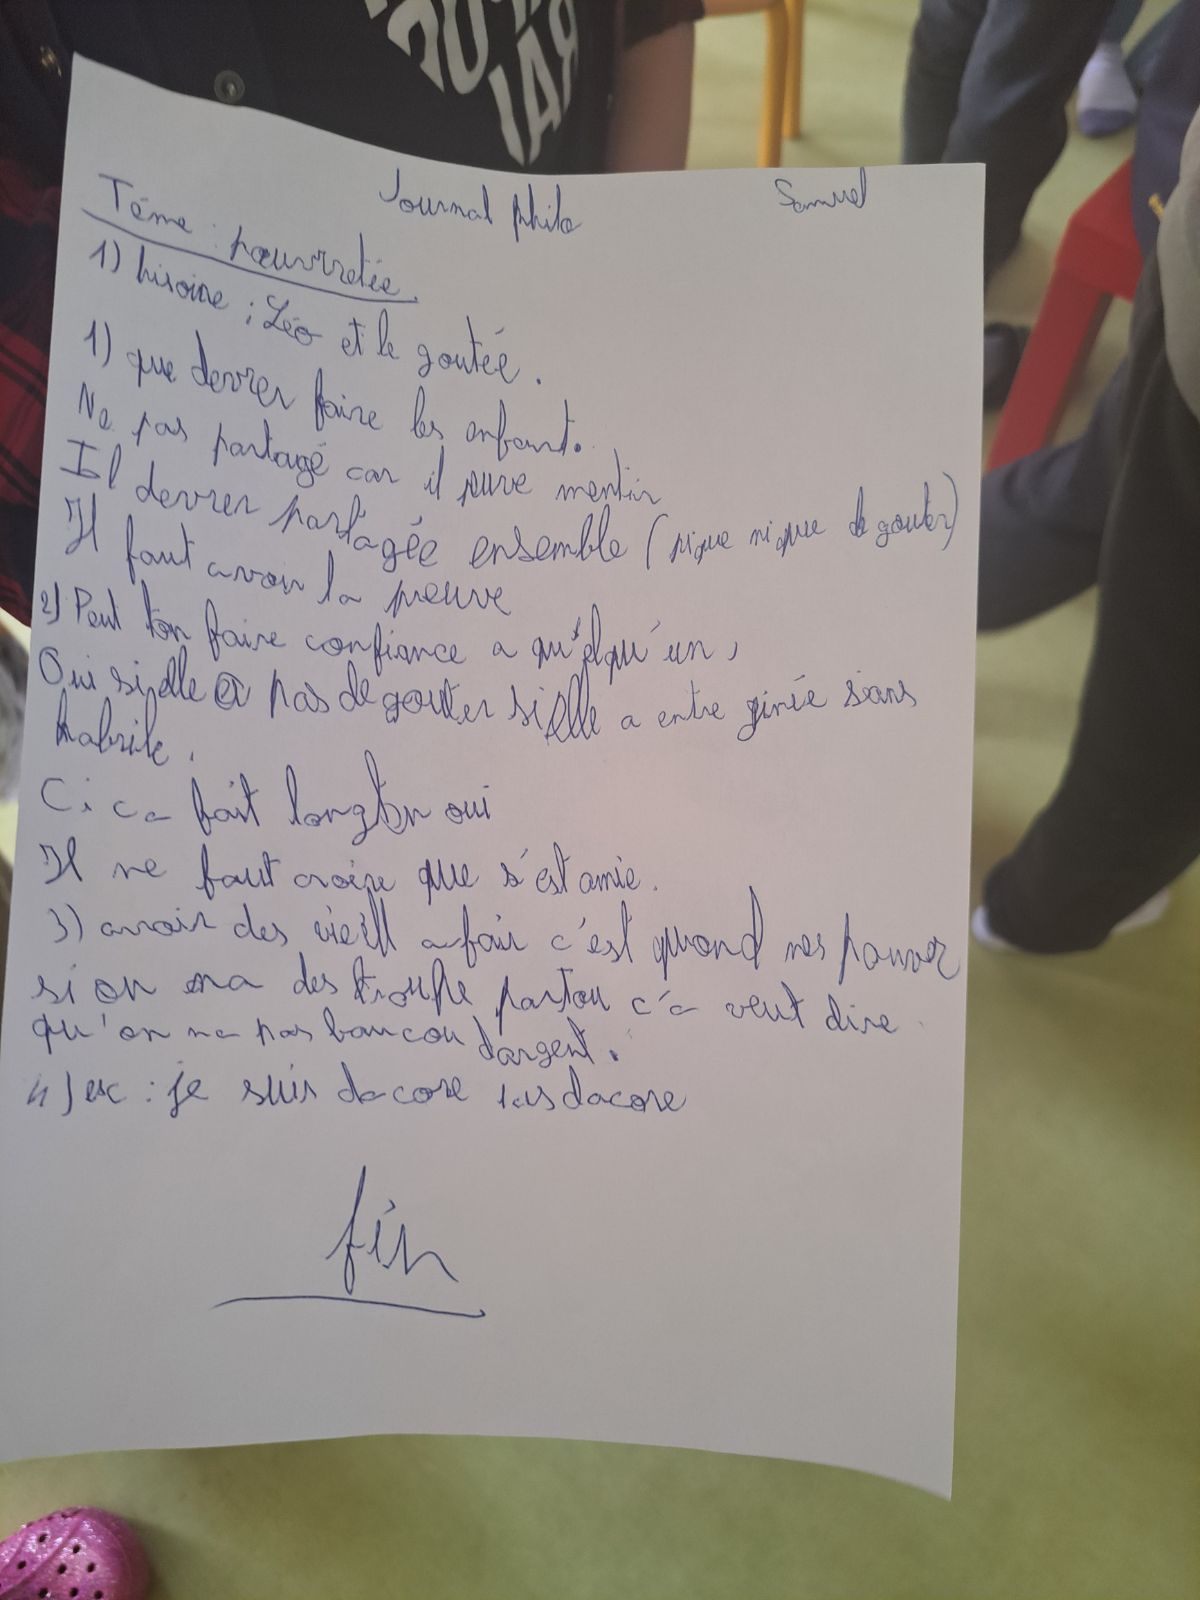 Journal philo
Samuel
Téme : pœuvrretée.
1) hisoire : Léo et le goutée.
1) que devrer faire les enfant.
Ne pas partagé car il peuve mentir
Il devrer partagée ensemble (pique nique de gouter)
Il faut avoir la preuve
2) Peut ton faire confiance a qu'elqu'un,
Oui si elle a pas de gouter si elle a entre girée sans
habrile.
Ci ca fait longten oui
Il ne faut croire que s'est amie.
3) avoir des vieill afair c'est quand nes pauver
si on na des trouhe partou c'a veut dire
qu'on na pas baucou dargent.
4) ex : je suis dacore pas dacore
fin